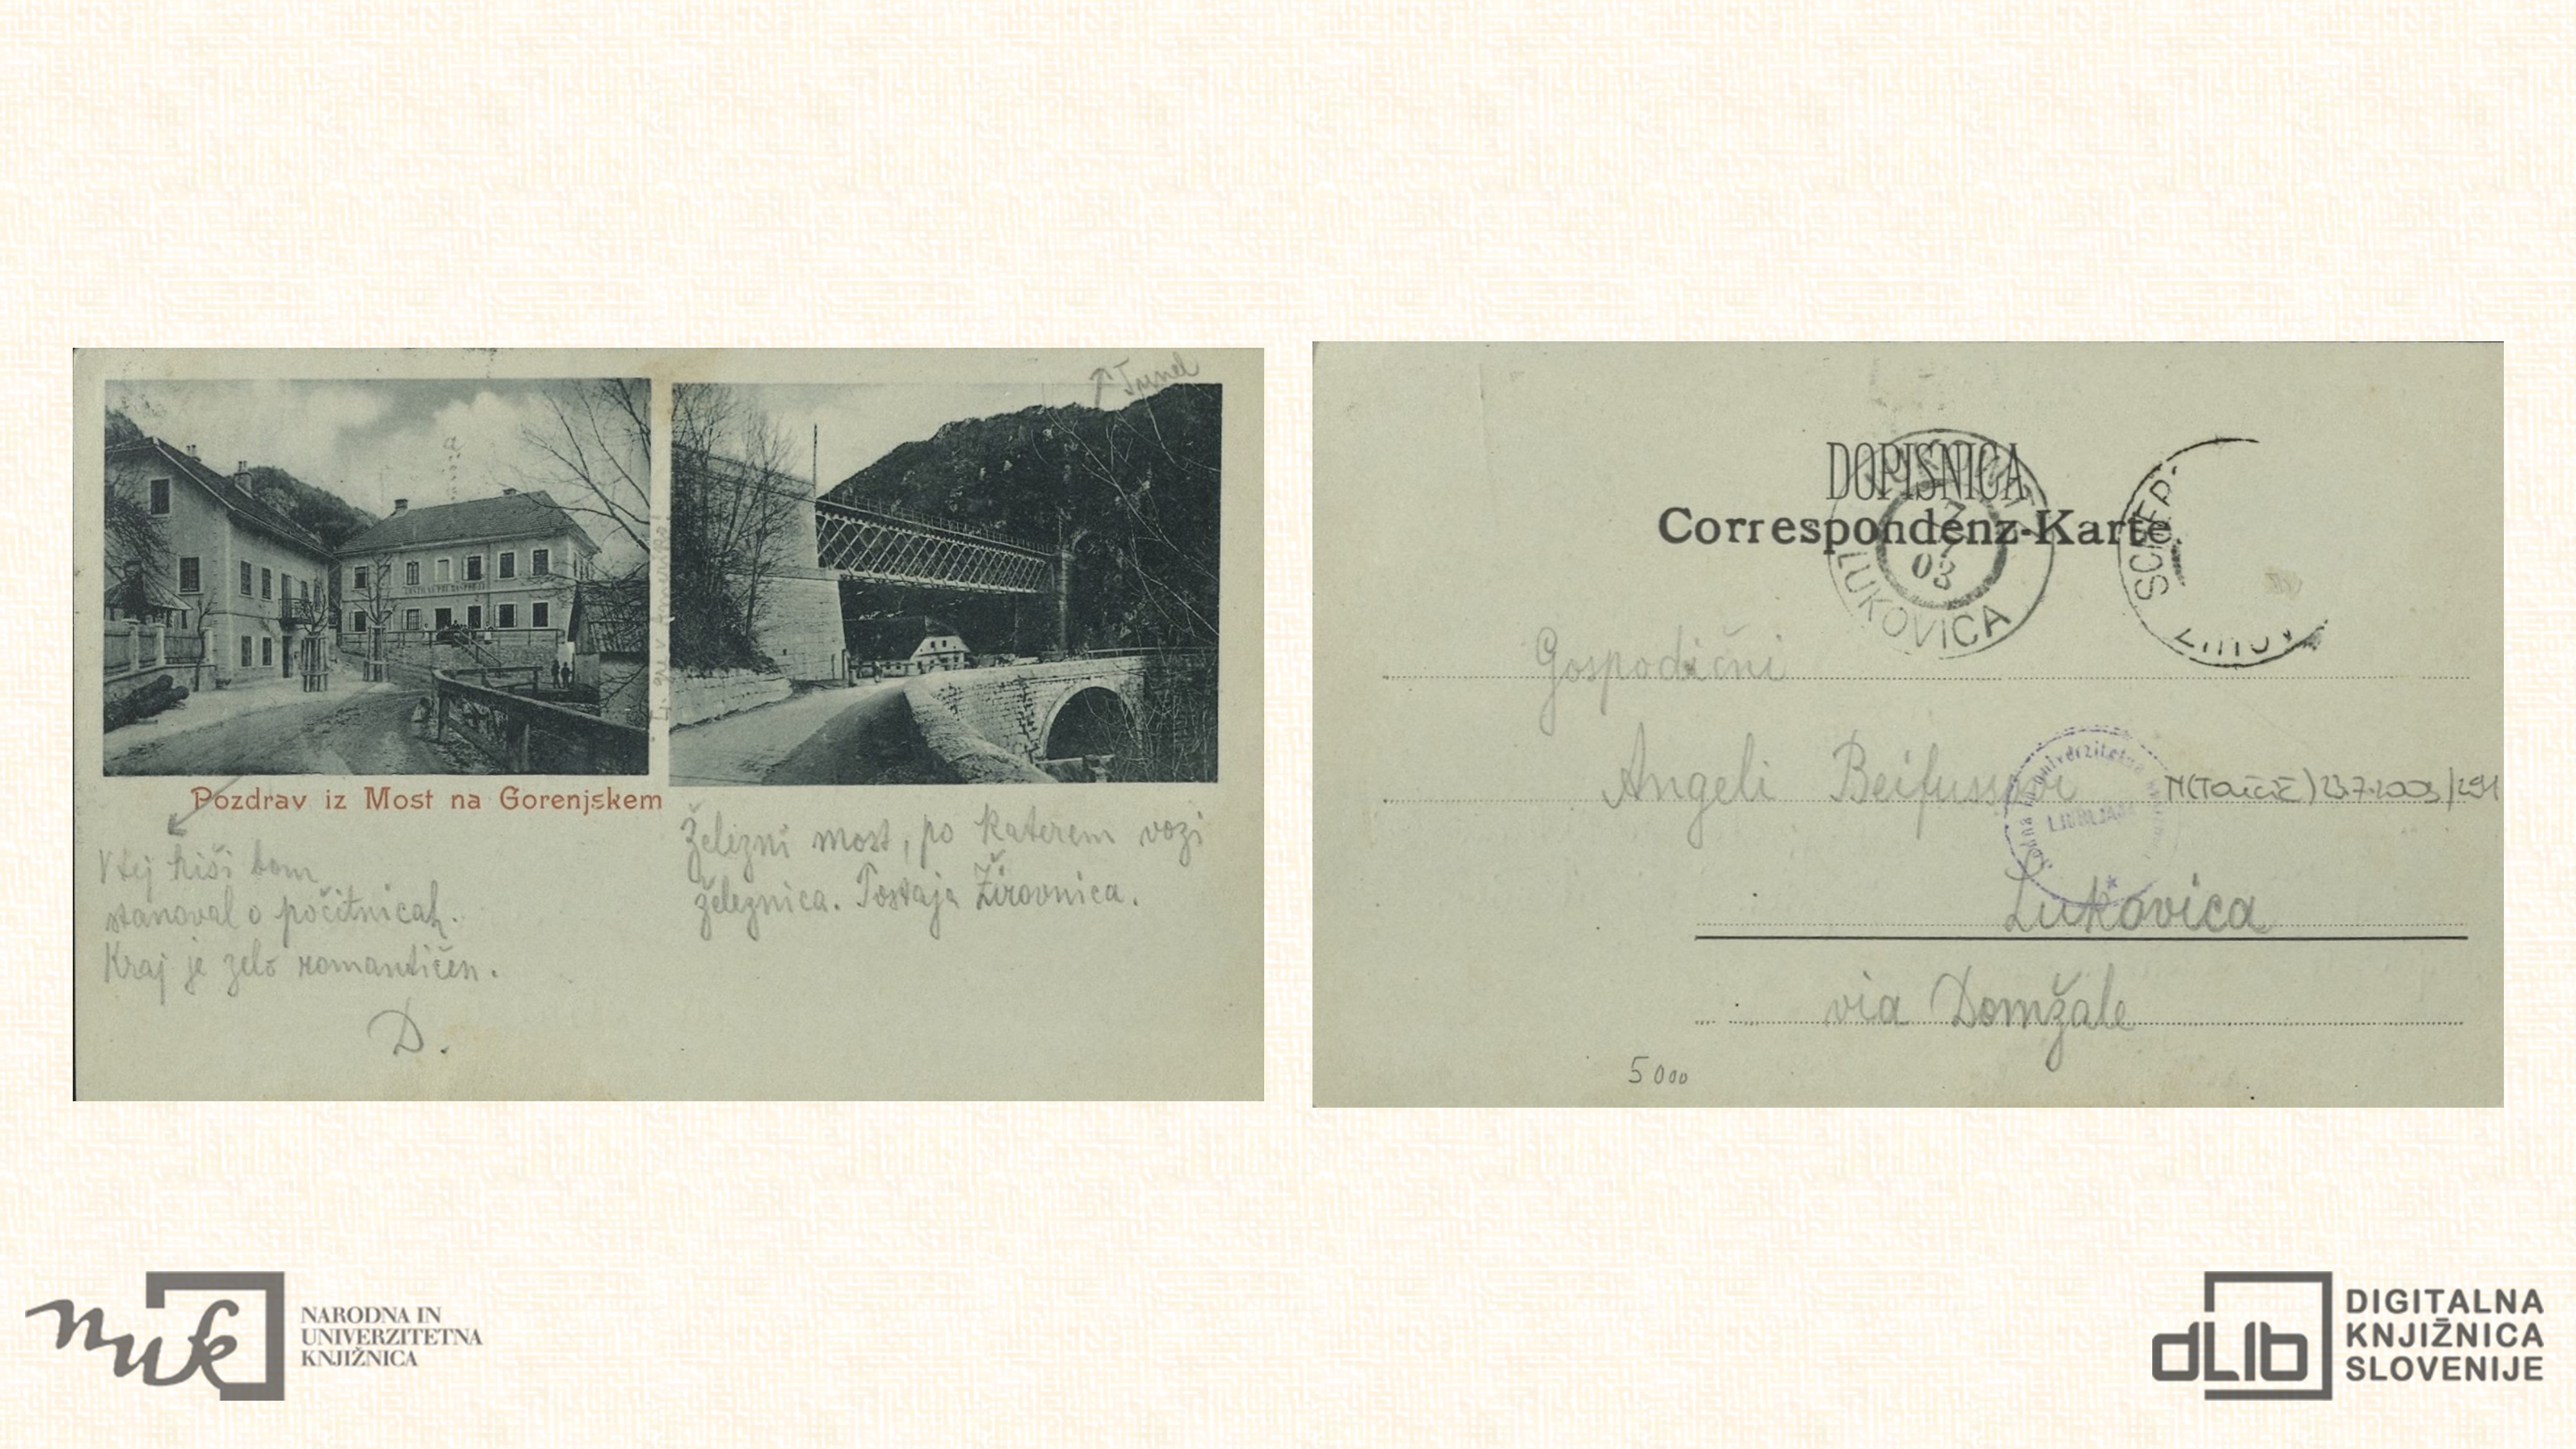 Tunel
Pozdrav iz Most na Gorenjskem
V tej hiši bom
stanoval o počitnicah.
Kraj je zelo romantičen.
D.
Železni most, po katerem vozi
železnica. Postaja Žirovnica.
DOPISNICA
Correspondenz-Karte
7
7
03
LUKOVICA
Gospodični
Angeli
23.7.2003/291
LJUBLJANA
Lukovica
via Domžale
5000
nuk
NARODNA IN
UNIVERZITETNA
KNJIŽNICA
dLib
DIGITALNA
KNJIŽNICA
SLOVENIJE